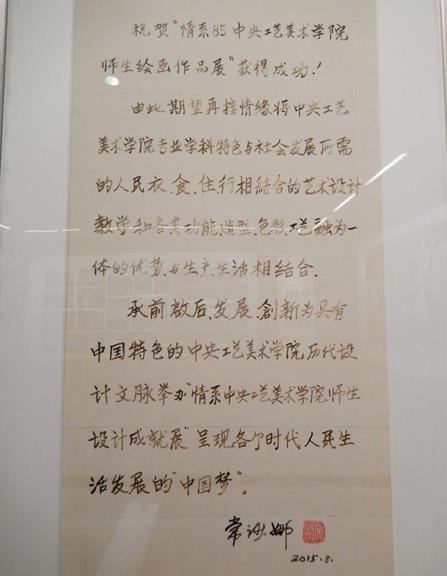 祝贺"情系85中央工艺美术学院
师生绘画作品展"获得成功!
由此期望再接情缘将中央工艺
美术学院专业学科特色与社会发展所需
的人民衣、食、住、行相结合的艺术设计
教学和各类功能、造型、色彩、工艺融为一
体的优势与生产、生活相结合.
承前启后、发展、创新为具有
中国特色的中央工艺美术学院历代设
计文脉举办"情系中央工艺美术学院师生
设计成就展"呈现各个时代人民生
活发展的"中国梦"。
常沙娜
2015.8.